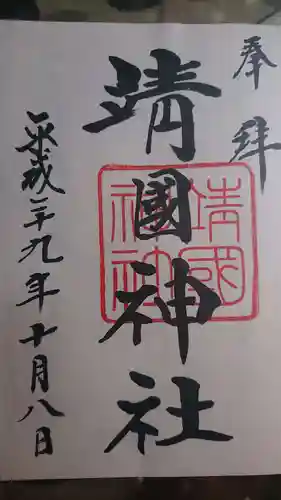 奉拝
靖國神社
靖國
神社
平成二十九年十月八日